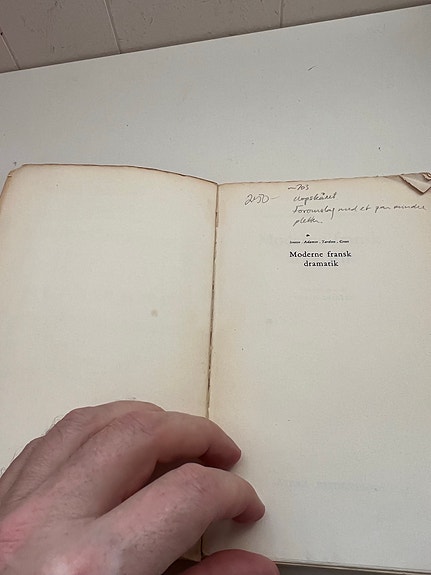 250-
uopskåret
Foromslag med et par mindre
pletter.
Ionesco . Adamov . Tardieu . Genet
Moderne fransk
dramatik